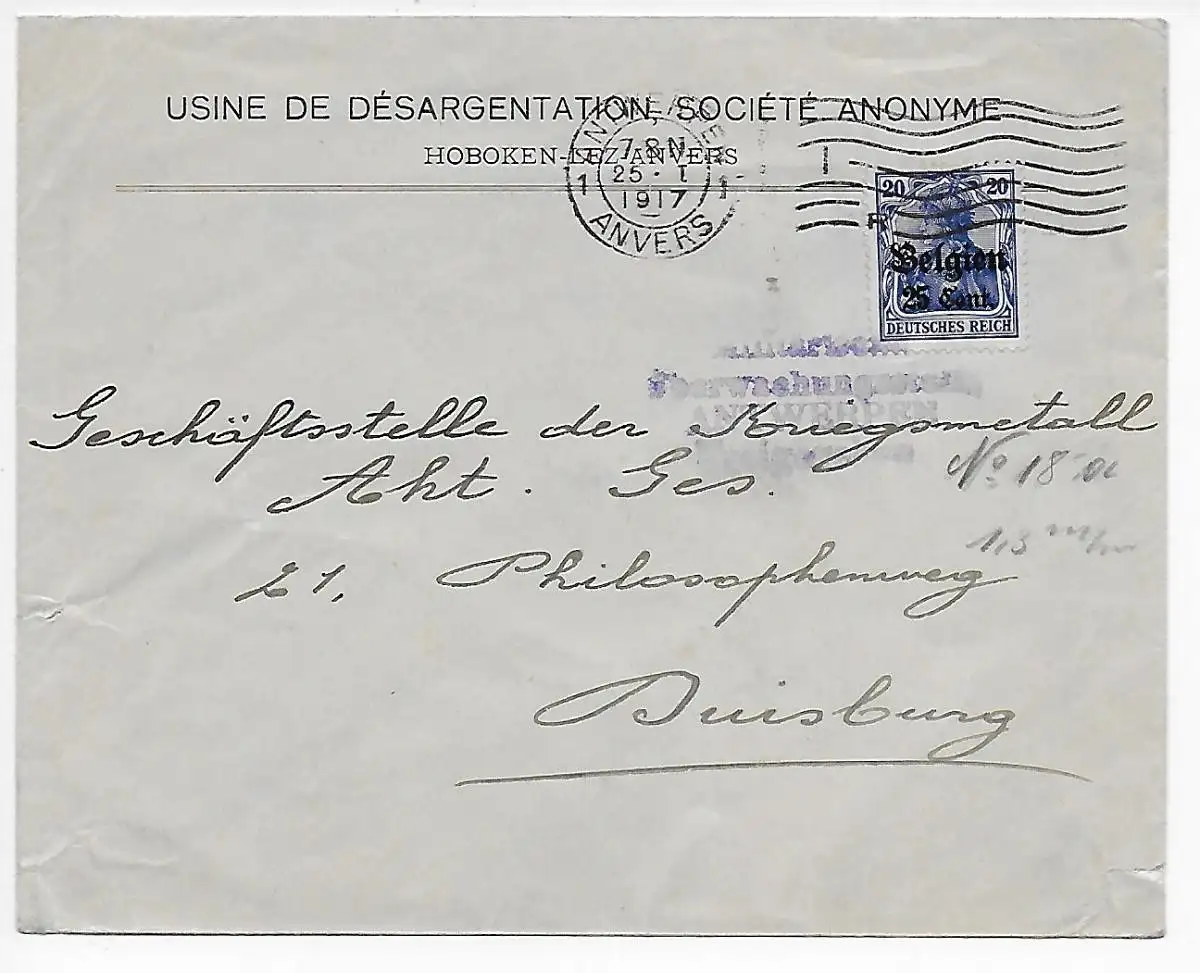 USINE DE DÉSARGENTATION, SOCIÉTÉ ANONYME
HOBOKEN-LEZ-ANVERS
ANTWERPEN
7-8 N
25 · I
1917
1 1
ANVERS
20 20
Belgien
25 Cent.
DEUTSCHES REICH
Überwachungsstelle
ANTWERPEN
Geschäftsstelle der Kriegsmetall
Akt. Ges.
No 18
1,3 m/m
21, Philosophenweg
Duisburg